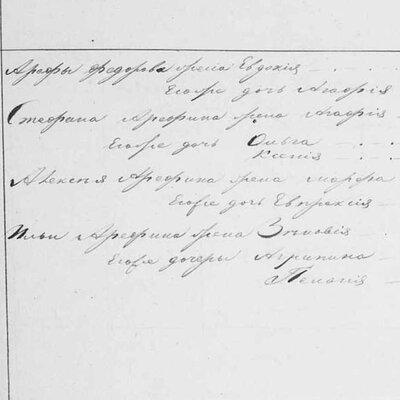 Арефы Федорова жена Евдокія
Егоже дочь Агафія
Стефана Арефина жена Агафія
Егоже дочь Ольга
Ксенія
Алексея Арефина жена Марфа
Егоже дочь Евпраксія
Ильи Арефина жена Зиновія
Егоже дочеры Агрипина
Пелагія